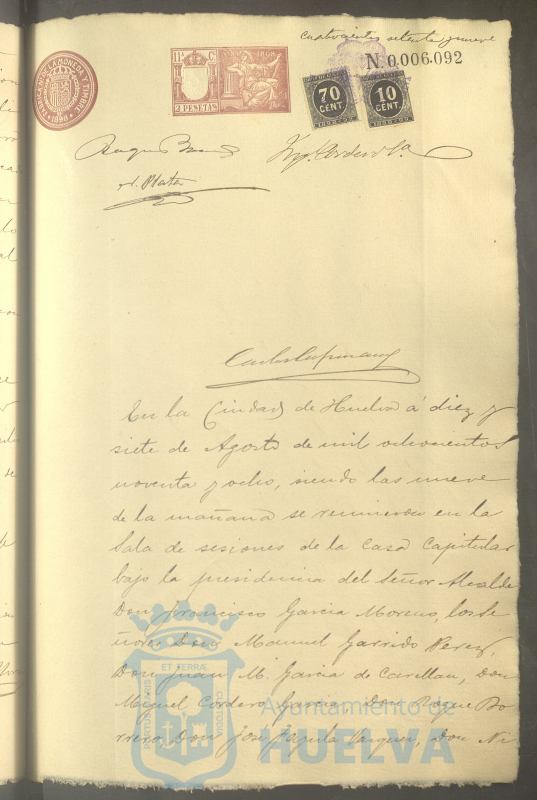 cuatrocientos setenta y nueve
N. 0.006.092
FABRICA N. DE LA MONEDA Y TIMBRE
1898
11ª C
2 PESETAS
70
CENT
10
CENT
Roque
Plata
En la Ciudad de Huelva á diez y
siete de Agosto de mil ochocientos
noventa y ocho, siendo las nueve
de la mañana se reunieron en la
Sala de sesiones de la Casa Capitular
bajo la presidencia del Señor Alcalde
Don Francisco García Moreno, los Se
ñores Don Manuel Garrido Perez,
Don Juan M. García de Casellan, Don
Miguel Cordero García, Don Roque Bo
rrero, Don José Vazquez, Don Ni
PORTUS MARIS
ET TERRÆ
CUSTODIA
Ayuntamiento de
HUELVA